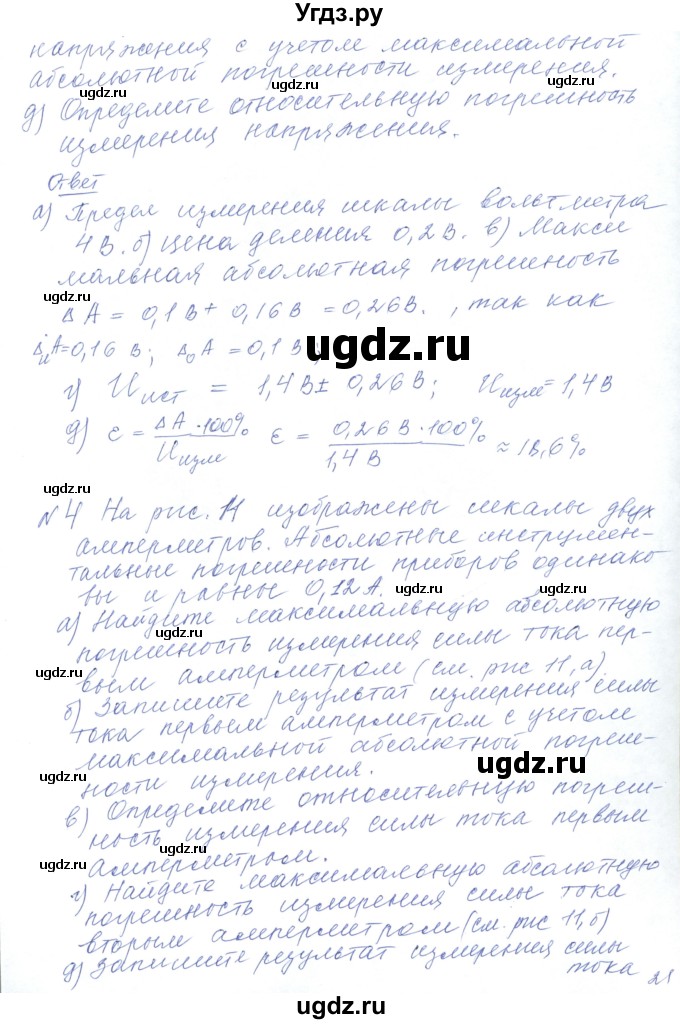 Угдз.ру
напряжения с учетом максимальной
абсолютной погрешности измерения.
ugdz.ru ugdz.ru ugdz.ru
д) Определите относительную погрешность
измерения напряжения.
Ответ
ugdz.ru ugdz.ru
а) Предел измерения шкалы вольтметра
4 В. б) Цена деления 0,2 В. в) Макси
мальная абсолютная погрешность
ugdz.ru
ΔA = 0,1 В + 0,16 В = 0,26 В. , так как
ΔиA = 0,16 В; Δ0A = 0,1 В
ugdz.ru
г) Uист = 1,4 В ± 0,26 В; Uизм = 1,4 В
д) ε = ΔA · 100% / Uизм ε = 0,26 В · 100% / 1,4 В ≈ 18,6%
ugdz.ru
№4 На рис. 11 изображены шкалы двух
амперметров. Абсолютные инструмен-
тальные погрешности приборов одинако
вы и равны 0,12 А.
ugdz.ru ugdz.ru
а) Найдите максимальную абсолютную
ugdz.ru
погрешность измерения силы тока пер-
вым амперметром (см. рис 11, а)
ugdz.ru
б) Запишите результат измерения силы
тока первым амперметром с учетом
максимальной абсолютной погреш-
ности измерения.
ugdz.ru ugdz.ru
в) Определите относительную погреш-
ность измерения силы тока первым
амперметром.
ugdz.ru
г) Найдите максимальную абсолютную
погрешность измерения силы тока
ugdz.ru
вторым амперметром (см. рис 11, б)
ugdz.ru
д) Запишите результат измерения силы
тока
21
ugdz.ru